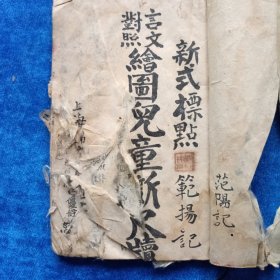 新式標點
範揚記
言文
對照
繪圖兒童新尺牘
上海
范陽記.